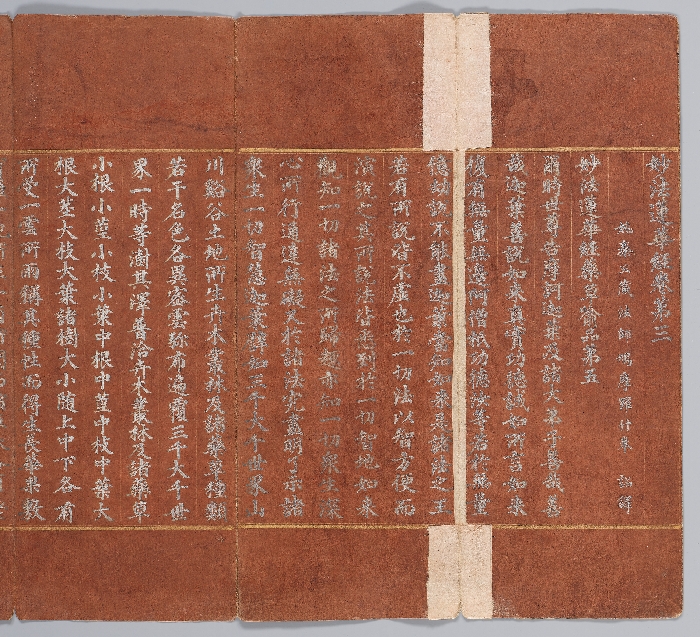 妙法蓮華經卷第三
姚秦三藏法師鳩摩羅什奉 詔譯
妙法蓮華經藥草喻品第五
爾時世尊告摩訶迦葉及諸大弟子善哉善
哉迦葉善說如來真實功德誠如所言如來
復有無量無邊阿僧祇功德汝等若於無量
億劫說不能盡迦葉當知如來是諸法之王
若有所說皆不虛也於一切法以智方便而
演說之其所說法皆悉到於一切智地如來
觀知一切諸法之所歸趣亦知一切眾生深
心所行通達無礙又於諸法究盡明了示諸
眾生一切智慧迦葉譬如三千大千世界山
川谿谷土地所生卉木叢林及諸藥草種類
若干名色各異密雲彌布遍覆三千大千世
界一時等澍其澤普洽卉木叢林及諸藥草
小根小莖小枝小葉中根中莖中枝中葉大
根大莖大枝大葉諸樹大小隨上中下各有
所受一雲所雨稱其種性而得生長華菓敷